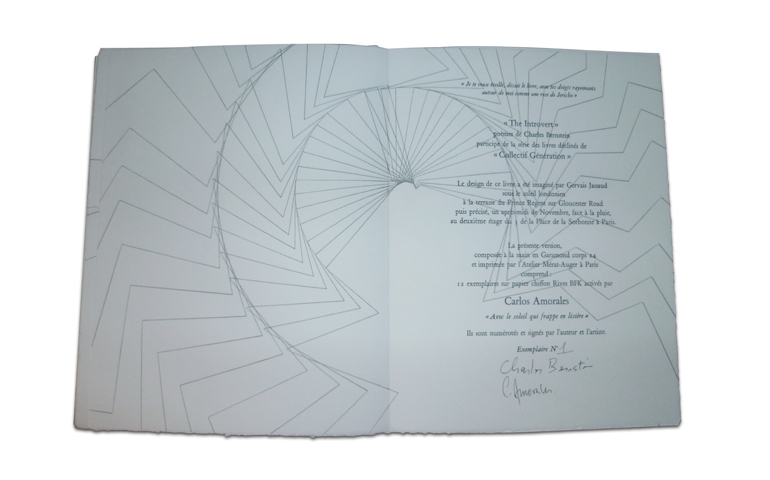 « Je te trace étoilé, disait le livre, avec les doigts rayonnants
autour de moi comme une rose de Jericho »
« The Introvert »
poèmes de Charles Bernstein
participe de la série des livres déclinés de
« Collectif Génération »
Le design de ce livre a été imaginé par Gervais Jassaud
sous le soleil londonien
à la terrasse du Prince Regent sur Gloucester Road
puis précisé, un après-midi de Novembre, face à la pluie,
au deuxième étage du 5 de la Place de la Sorbonne à Paris.
La présente version,
composée à la main en Garamond corps 24
et imprimée par l'Atelier Mérat-Auger à Paris
comprend :
12 exemplaires sur papier chiffon Rives BFK activés par
Carlos Amorales
« Avec le soleil qui frappe en lisière »
Ils sont numérotés et signés par l'auteur et l'artiste.
Exemplaire N° 1
Charles Bernstein
C. Amorales